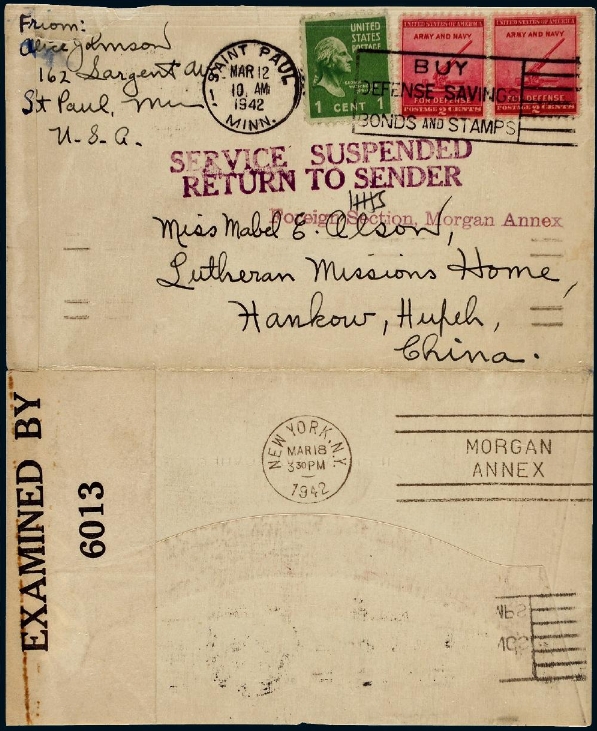 From:
Alice Johnson
162 Sargent Av
St Paul, Minn
U.S.A.
SAINT PAUL
MAR 12
10 AM
1942
MINN.
UNITED
STATES
POSTAGE
1 CENT 1
UNITED STATES OF AMERICA
ARMY AND NAVY
FOR DEFENSE
POSTAGE 2 CENTS
UNITED STATES OF AMERICA
ARMY AND NAVY
FOR DEFENSE
POSTAGE 2 CENTS
BUY
DEFENSE SAVINGS
BONDS AND STAMPS
SERVICE SUSPENDED
RETURN TO SENDER
Foreign Section, Morgan Annex
Miss Mabel E. Olson,
Lutheran Missions Home,
Hankow, Hupeh,
China.
EXAMINED BY
6013
NEW YORK, N.Y.
MAR 18
3 30 PM
1942
MORGAN
ANNEX